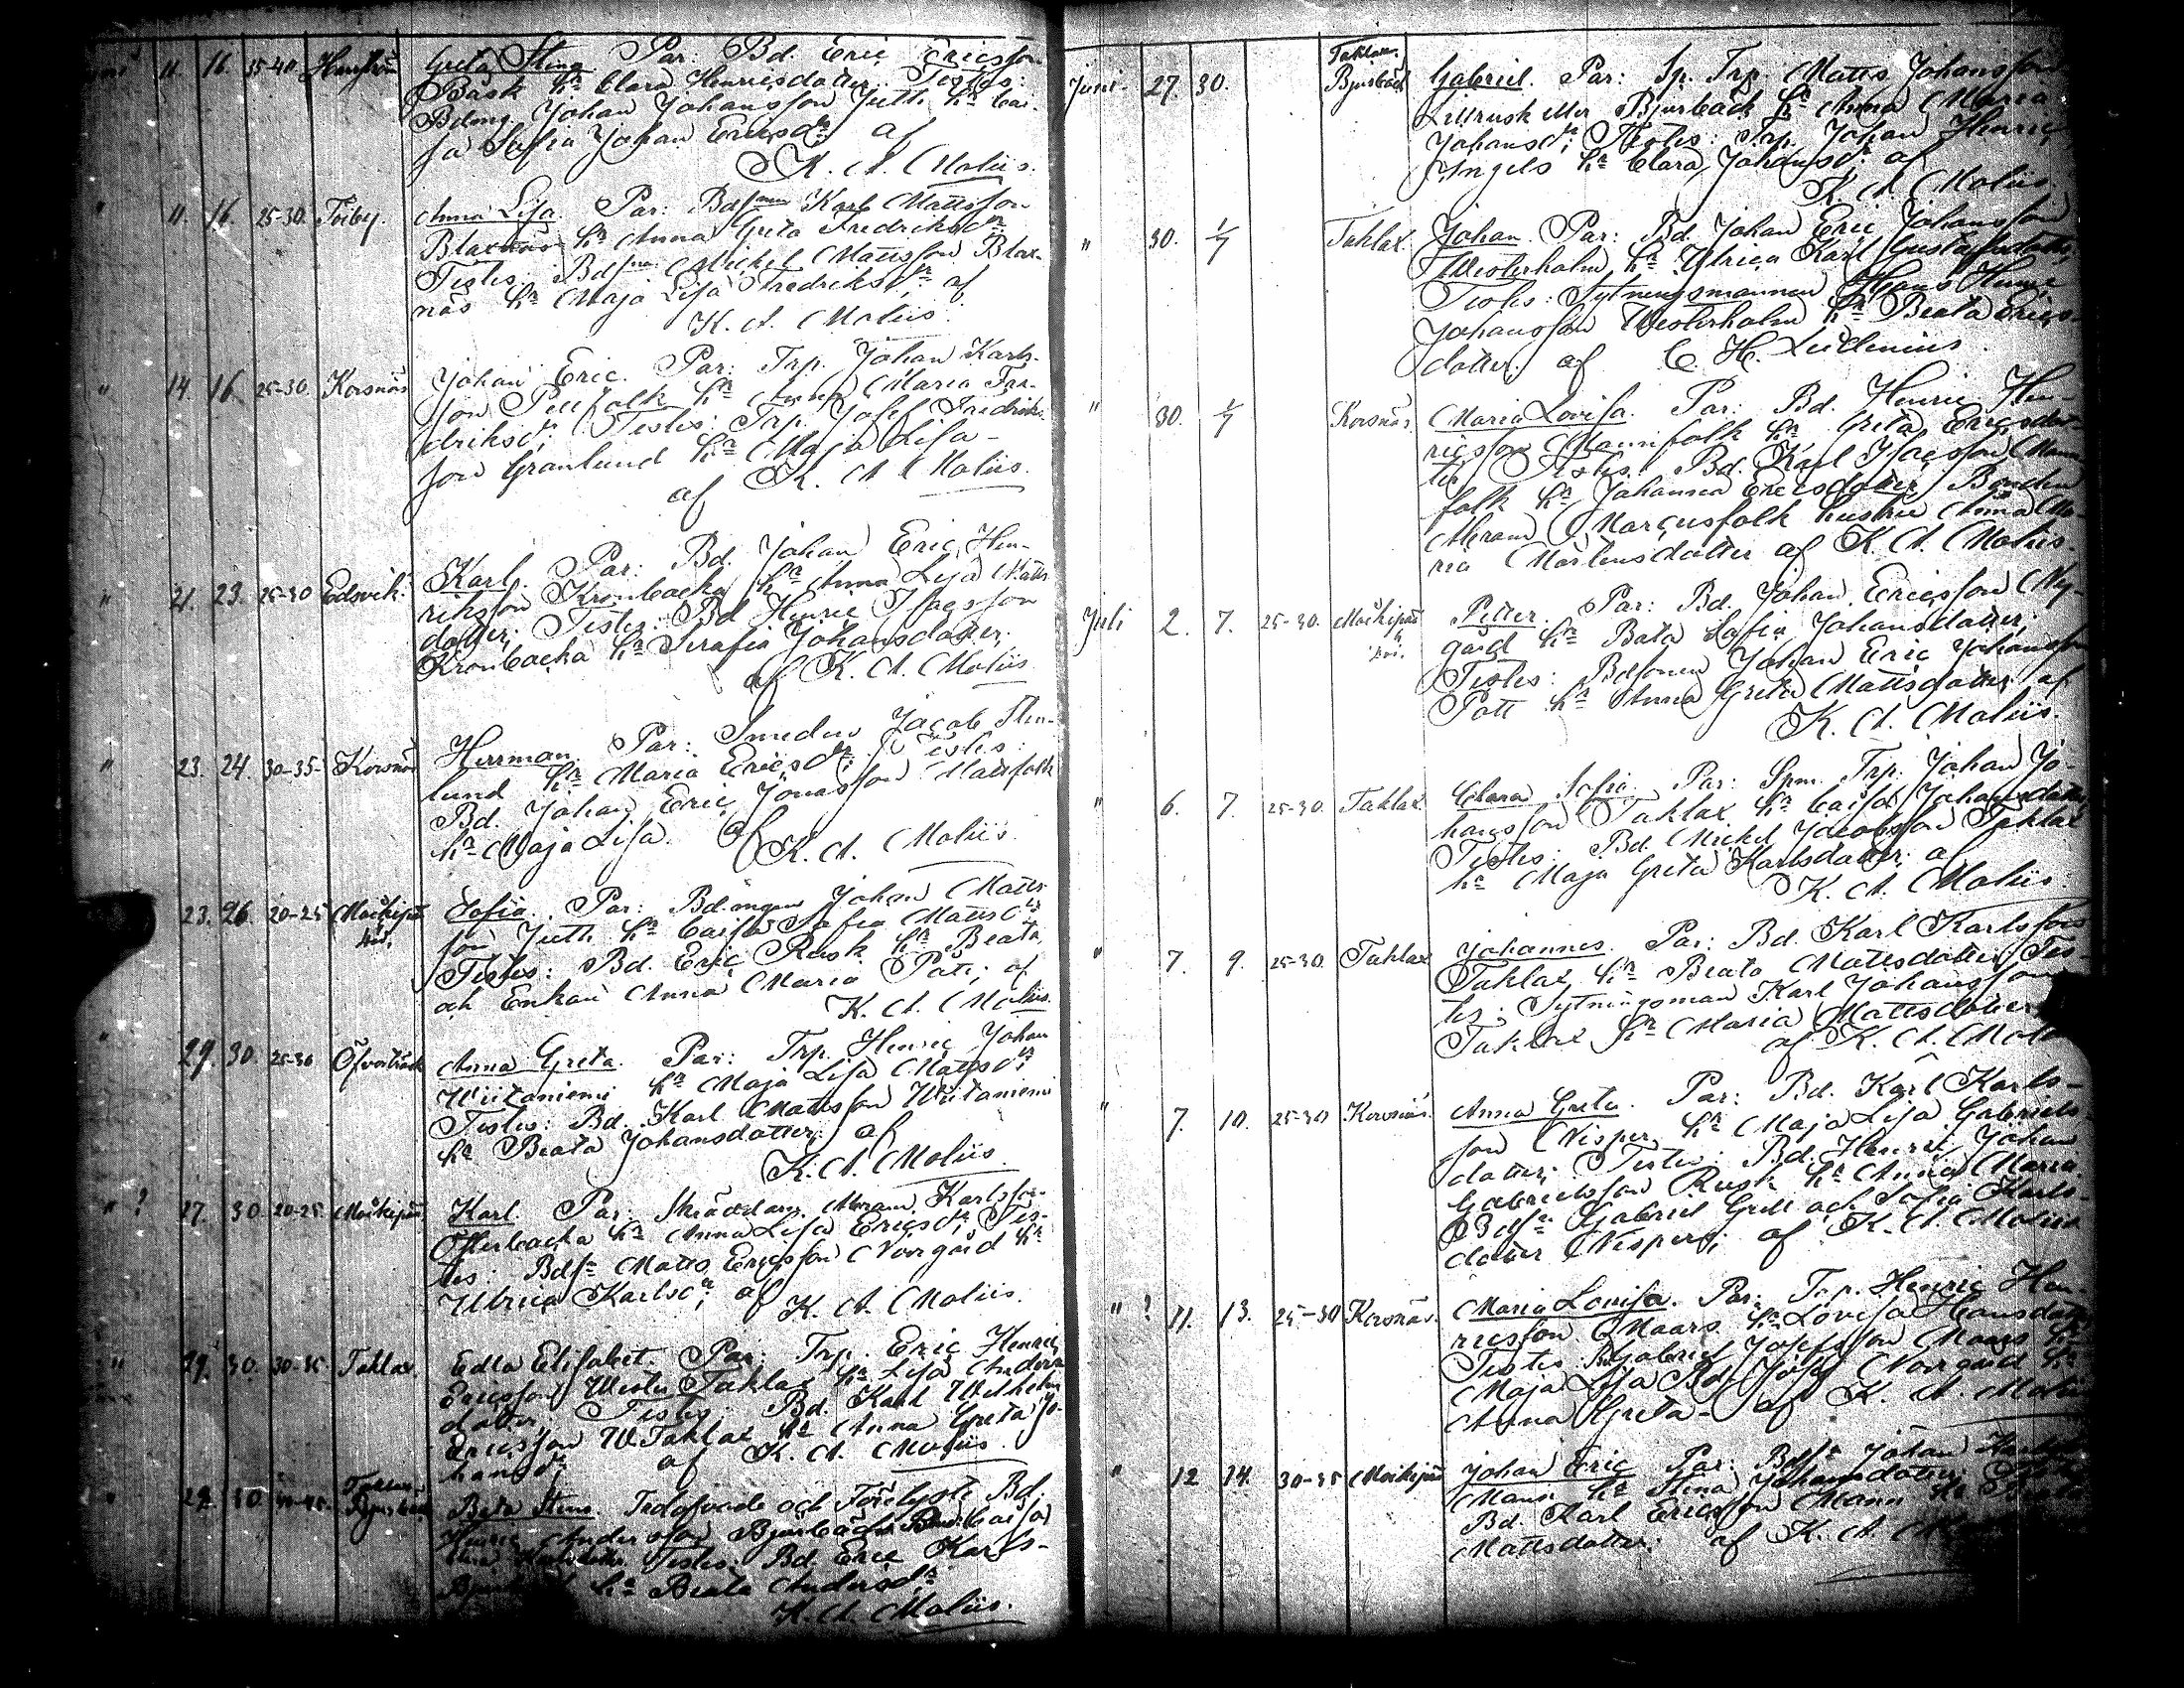 11. 16. 35-40 Greta Stina Par: Bd. Eric Ericsson
Bask hr Clara Henricsdotter Testes:
Bdmg Johan Johansson Juth hr Cai-
sa Sofia Johan Ericsdr af
K. A. Moliis.
" 11. 16. 25-30. Töiby. Anna Lisa Par: Bdsman Karl Mattsson
Blaxnäs hr Anna Greta Fredriksdr
Testes: Bdsman Mickel Mattsson Blax-
näs hr Maja Lisa Fredriksdr, af
K. A. Moliis.
" 14. 16. 25-30. Korsnäs Johan Eric. Par: Trp. Johan Karls-
son Pellfolk hr Anna Maria Fre-
driksdr; Testes: Trp. Josef Fredriks-
son Granlund hr Maja Lisa-
af K. A. Moliis.
" 21. 23. 25-30 Edsvik. Karl. Par: Bd. Johan Eric Hen-
riksson Kronbacka hr Anna Lisa Matts-
dotter; Testes: Bd Henric Isacsson
Kronbacka hr Serafia Johansdotter;
af K. A. Moliis
" 23. 24. 30-35- Korsnäs Herrman. Par: Smeden Jacob Sten-
lund hr Maria Ericsdr; Testes:
Bd. Johan Eric Jonasson
hr Maja Lisa. af K. A. Moliis.
23. 26. 20-25 Sofia. Par: Bdmågen Johan Matts-
son Juth hr Caisa Sofia Mattsdr
Testes: Bd. Eric Rusk hr Beata
och Enkan Anna Maria Pått; af
K. A. Moliis.
" 29. 30. 25-30 Öfverträsk Anna Greta. Par: Trp. Henric Johan
Wiitaniemi hr Maja Lisa Mattsdr;
Testes: Bd. Karl Mattsson Wiitaniemi
hr Beata Johansdotter; af
K. A. Moliis.
" ? 27. 30. 20-25. Karl. Par: Skräddarn Abram Karlsson
Österbacka hr Anna Lisa Ericsdr; Tes-
tes: Bdsn Matts Ericsson Norrgård hr
Ulrica Karlsdr; af K. A. Moliis.
" 29. 30. 30-35. Taklax Edla Elisabet. Par: Trp. Eric Henric
Ericsson Wester Taklax hr Lisa Anders-
dotter; Testes: Bd. Karl Wilhelm
Ericsson W. Taklax hr Anna Greta Jo-
hansdr; af K. A. Moliis.
" 29. 30. Stina Trolofvade och Bd.
Henric Andersson
Testes: Bd. Eric Karls-
hr Beata Andersdr
K. A. Moliis.
Taklax.
Juni. 27. 30. Bjurbäck Gabriel. Par: Sp. Trp. Matts Johansson
eller Bjurbäck hr Anna Maria
Johansdr; Testes: Trp. Johan Henric
Ingels hr Clara Johansdr. af
K. A. Moliis.
" 30. 1/7 Taklax Johan. Par: Bd. Johan Eric Johansson
Westerholm, hr Ulrica Karl Gustafsdotter
Testes: Sytningsmannen Hans
Johansson Westerholm hr Beata Erics-
dotter; af C. H. Lidenius
" 30. 1/7 Korsnäs Maria Lovisa. Par: Bd. Henric Hen-
ricsson Mannfolk hr Greta Ericsdot-
ter Testes: Bd. Karl Isacsson Mann-
folk hr Johanna Ericsdotter, Bonden
Abram Marcusfolk hustru Anna Ma-
ria Mårtensdotter af K. A. Moliis.
Juli 2. 7. 25-30. Petter. Par: Bd. Johan Ericsson Ny-
gård hr Bata Sofia Johansdotter;
Testes: Bdsonen Johan Eric Johansson
Pått hr Anna Greta Mattsdotter; af
K. A. Moliis.
" 6. 7. 25-30. Taklax Clara Sofia. Par: Spm. Trp. Johan Jo-
hansson Taklax hr Caisa Johansdotter,
Testes: Bd. Mickel Jacobsson Taklax
hr Maja Greta Karlsdotter; af
K. A. Moliis.
" 7. 9. 25-30. Taklax Johannes. Par: Bd. Karl Karlsson
Taklax, hr Beata Mattsdotter; Tes-
tes: Sytningsman Karl Johansson
Taklax hr Maria Mattsdotter
af K. A. Moliis
" 7. 10. 25-30 Korsnäs. Anna Greta. Par: Bd. Karl Karls-
son Nisper hr Maja Lisa Gabriels-
dotter; Testes: Bd. Henric Johan
Gabrielsson Rusk hr Anna Maria
Bdsn Gabriel Grell och Sofia Karls-
dotter Nispers; af K. A. Moliis
" ? 11. 13. 25-30 Korsnäs. Maria Lovisa. Par: Trp. Henric Hen-
ricsson Maars hr Lovisa Hansdotter
Testes: Bd Gabriel Josefsson Maars hr
Maja Lisa Bd. Josef Norrgård hr
Anna Greta- af K. A. Moliis
" 12 14. 30-35 Johan Eric Par: Bdsn Johan
Mann hr Stina Johansdotter;
Bd. Karl Ericsson Mann hr
Mattsdotter; af K. A.